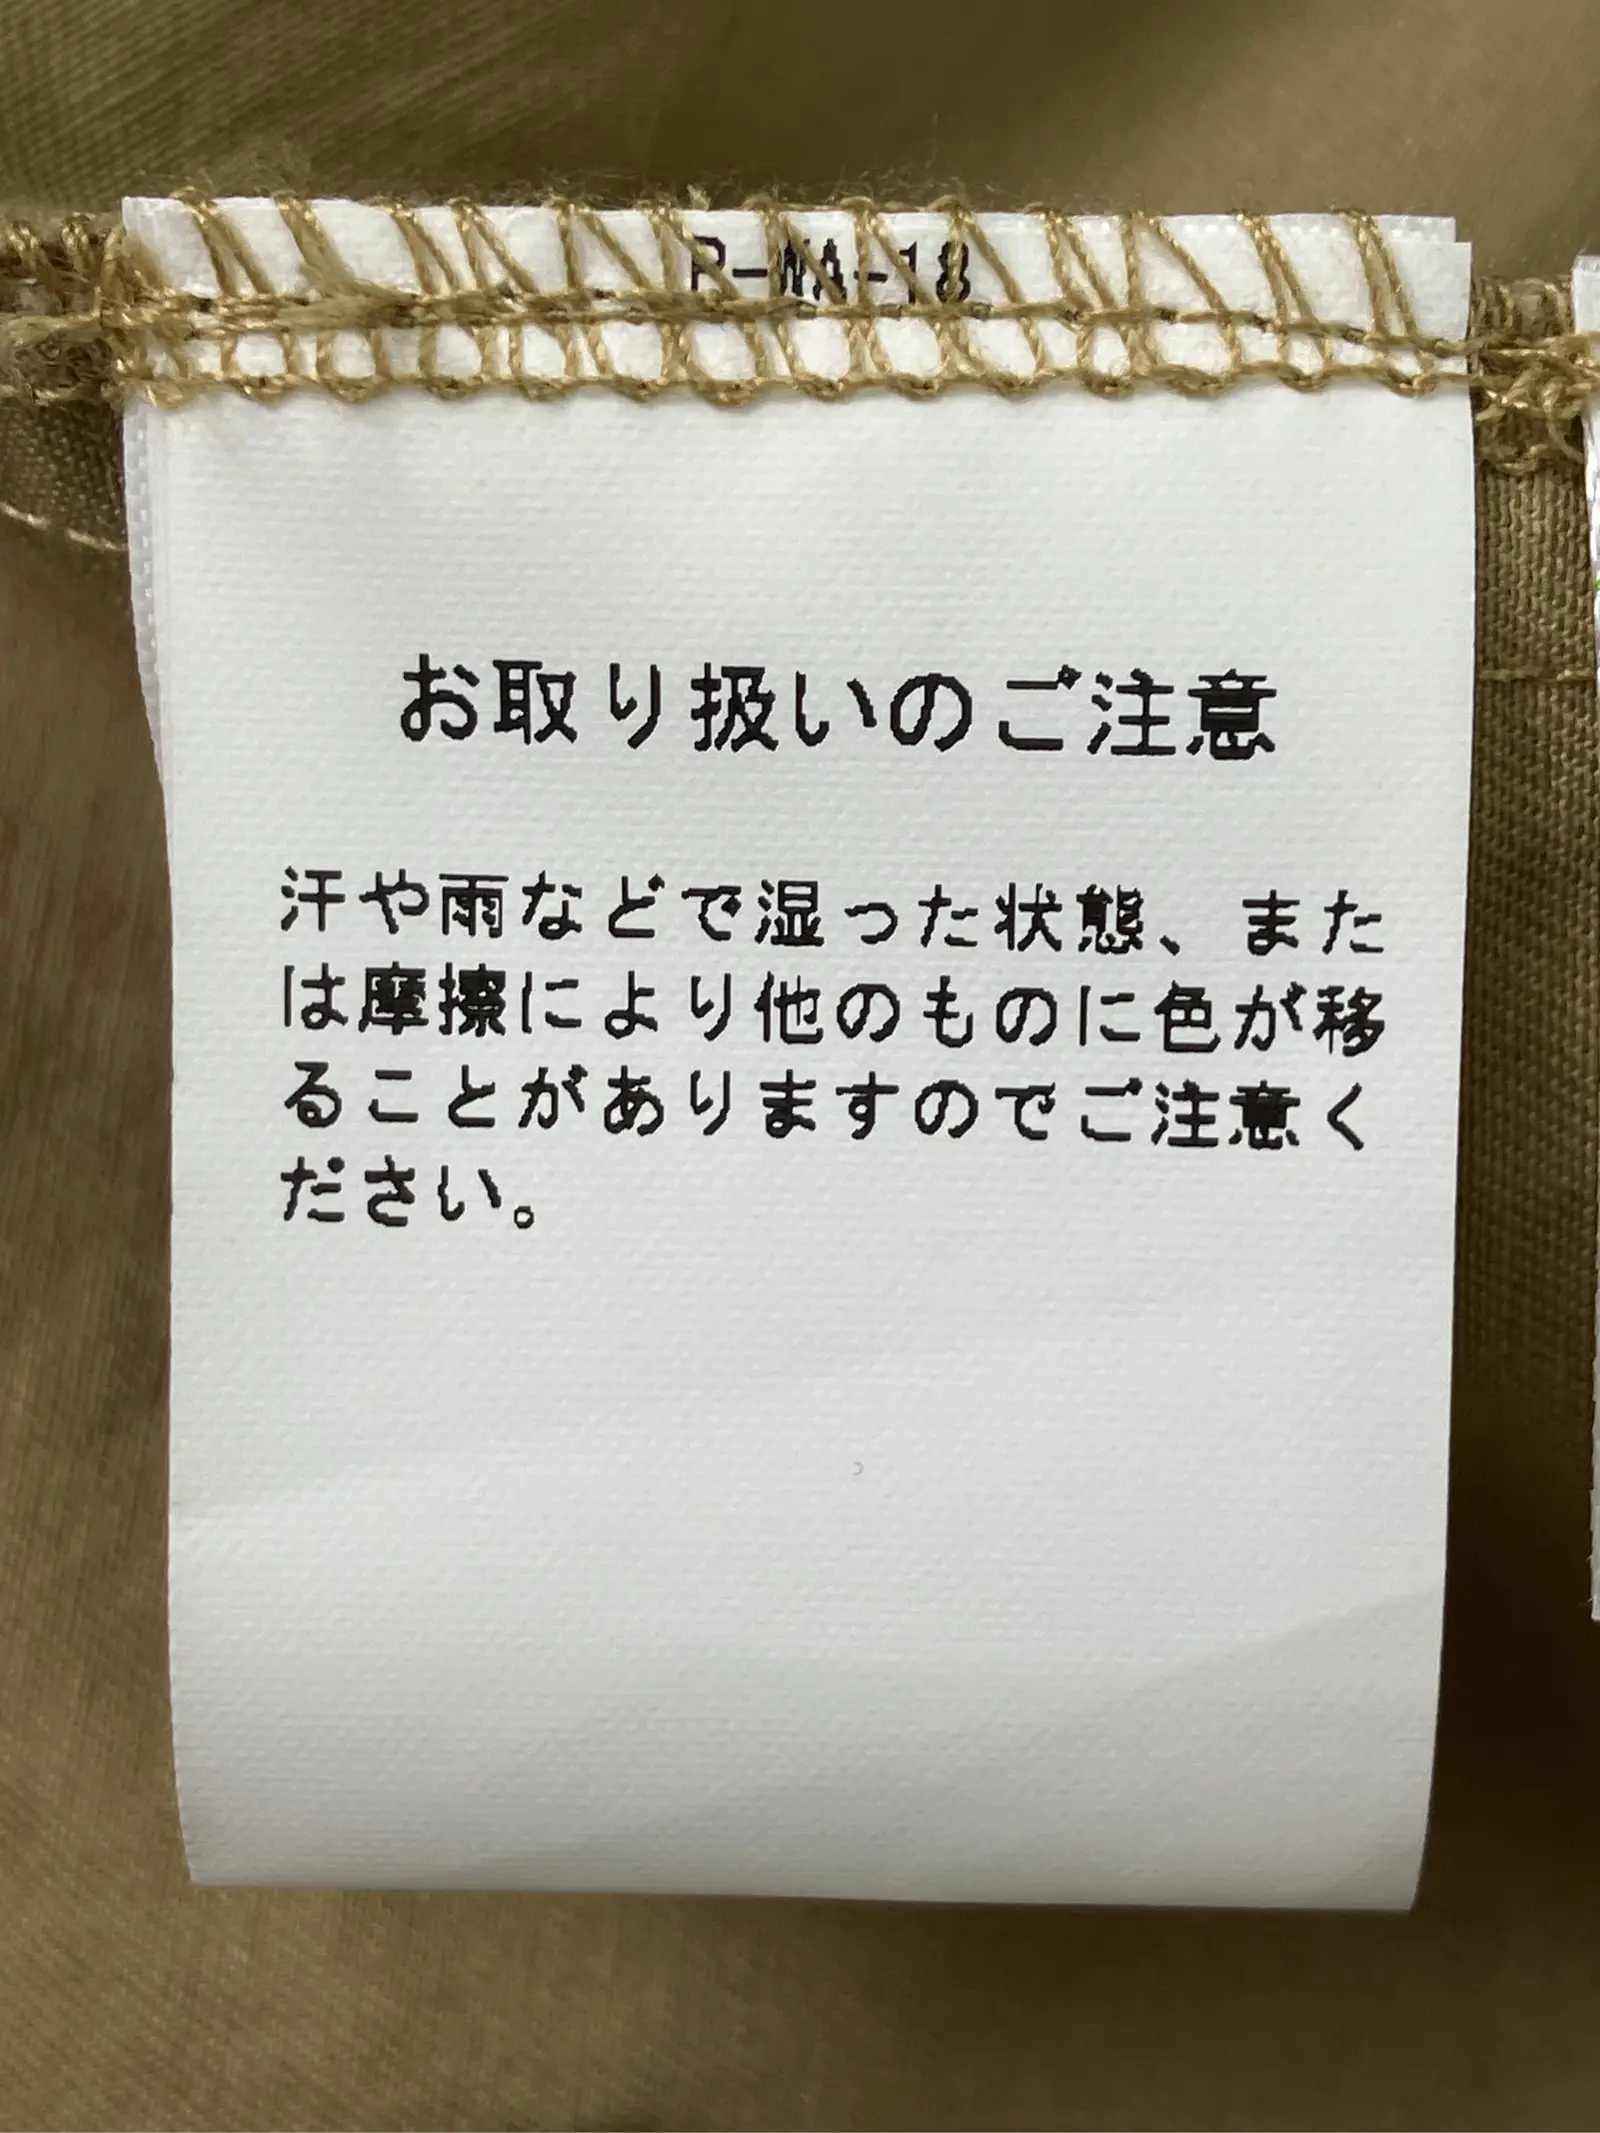 お取り扱いのご注意
汗や雨などで湿った状態、また
は摩擦により他のものに色が移
ることがありますのでご注意く
ださい。